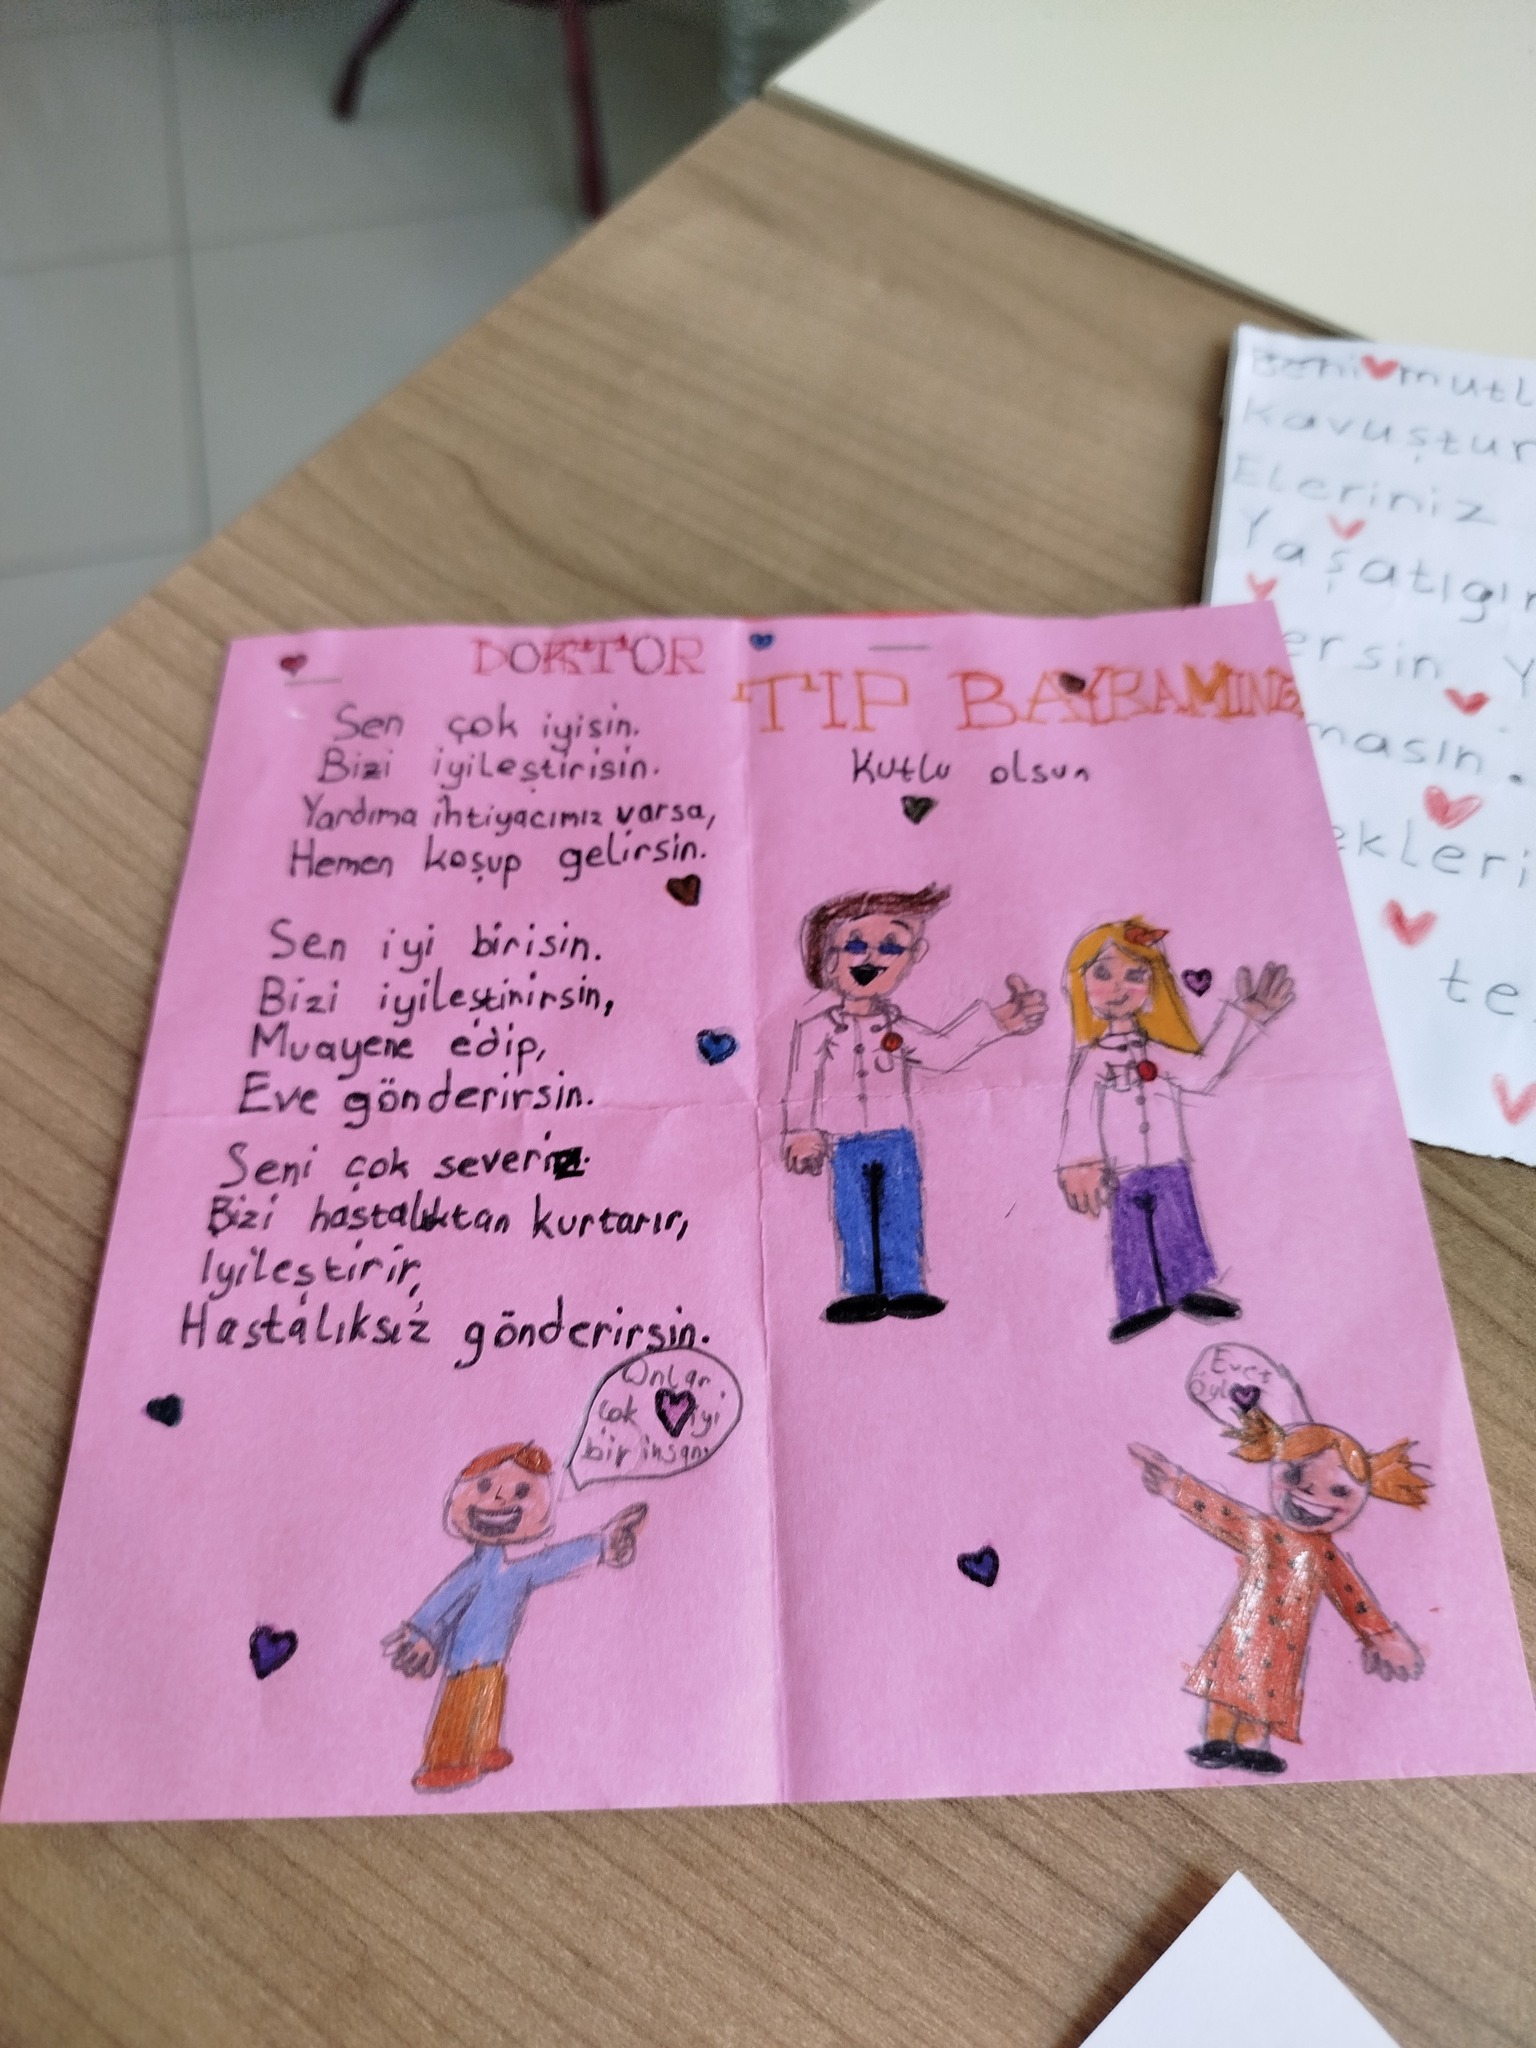 DOKTOR
Sen çok iyisin.
Bizi iyileştirisin.
Yardıma ihtiyacımız varsa,
Hemen koşup gelirsin.
Sen iyi birisin.
Bizi iyileştirirsin,
Muayene edip,
Eve gönderirsin.
Seni çok severiz.
Bizi hastalıktan kurtarır,
Iyileştirir,
Hastalıksız gönderirsin.
Onlar
çok iyi
bir insan
TIP BAYRAMINIZ
Kutlu olsun
Evet
öyle
Beni mutl
Kavuştur
Eleriniz
Yaşatıgın
ersin Y
masın.
ekleri
te